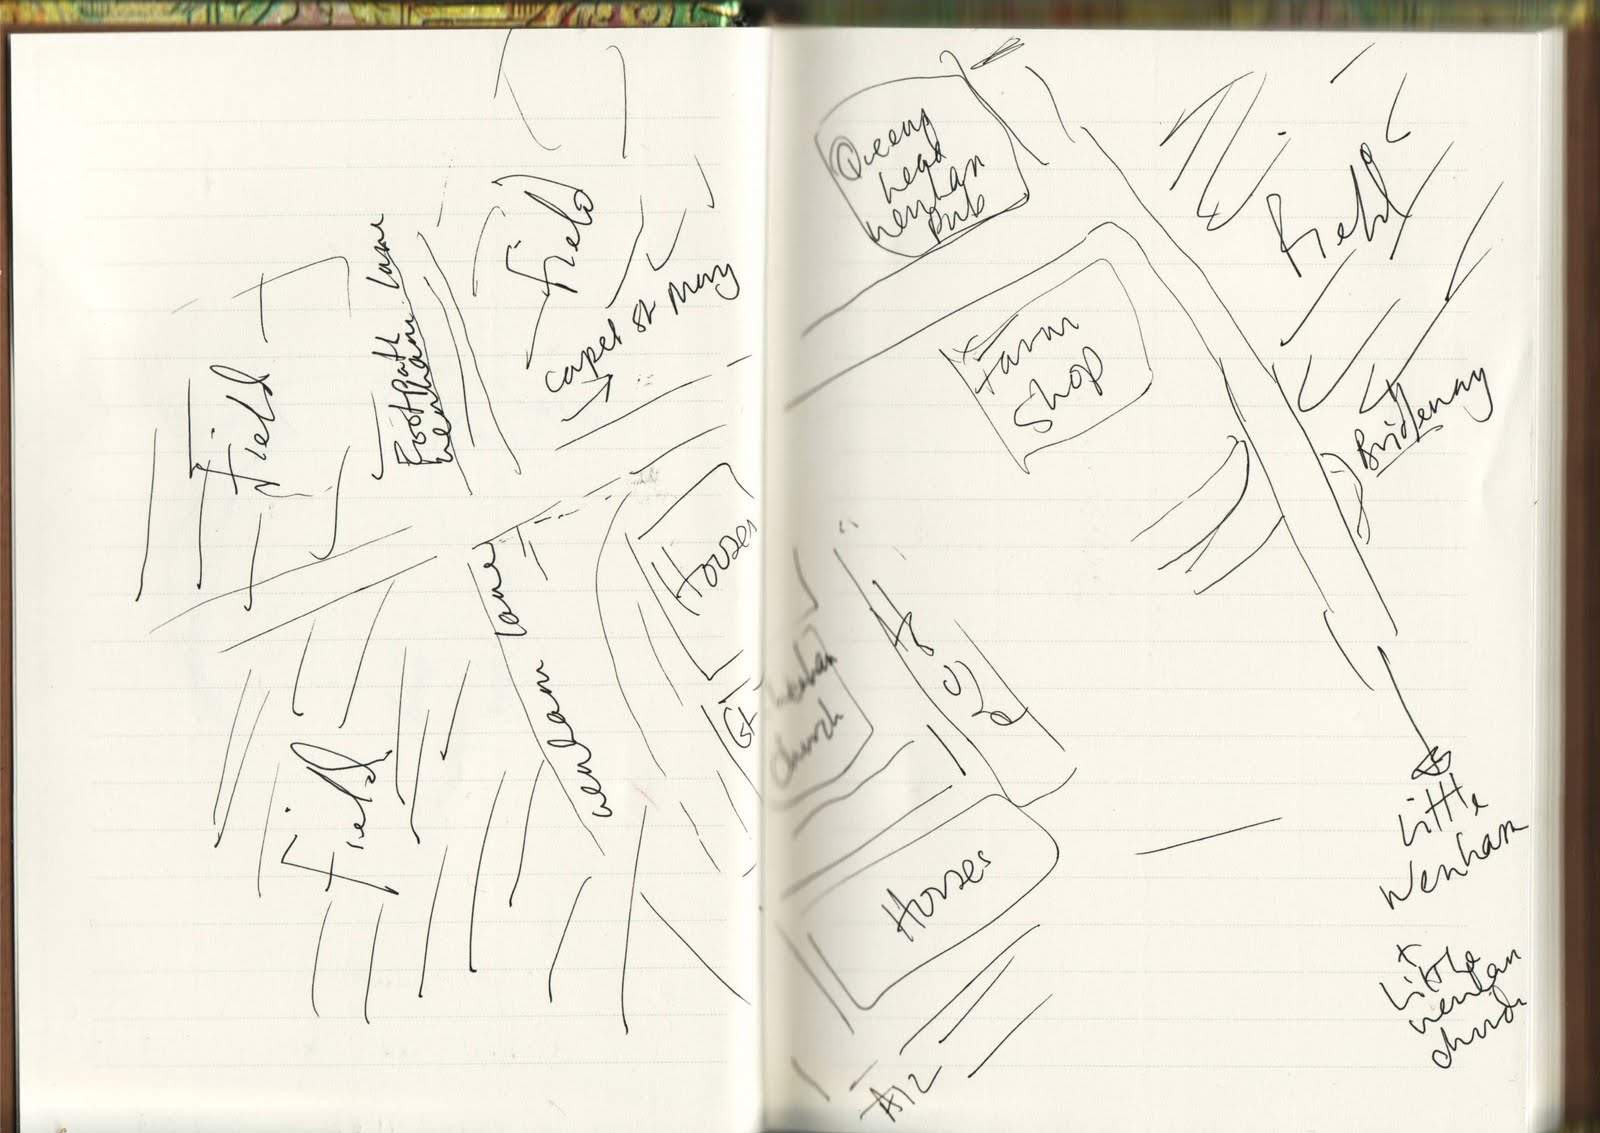 Field
Footpath Lane
Wenham
Field
Capel St Mary
Houses
Wenham Lane
Field
Gt
Wenham
church
Queens
head
Wenham
Pub
Farm
Shop
Field
Bridleway
Houses
A12
Little
Wenham
+
Little
Wenham
church